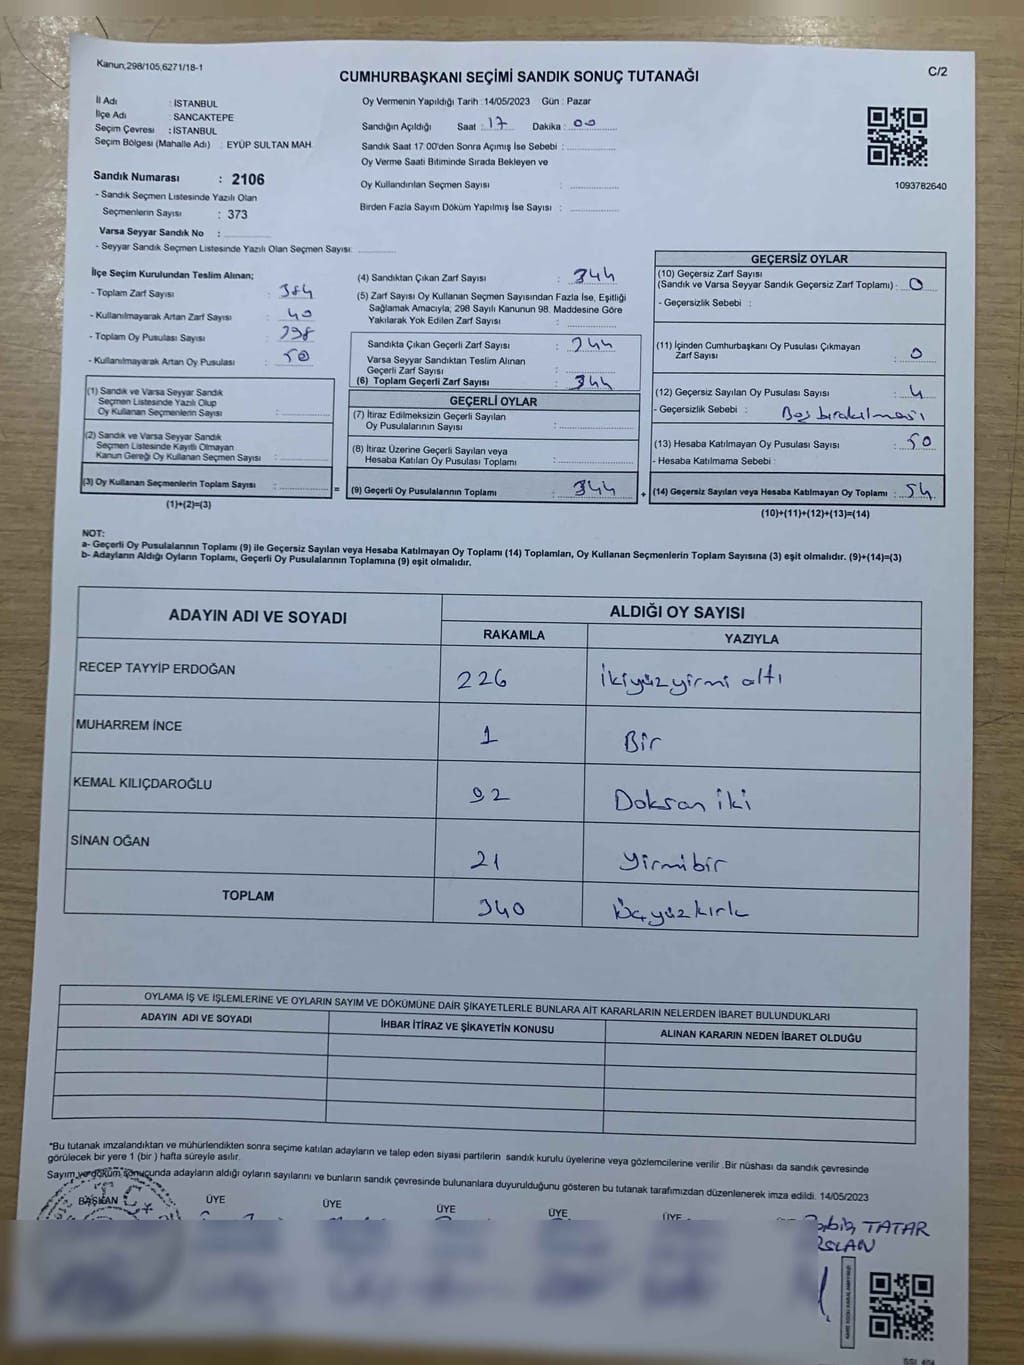 Kanun,298/105,6271/18-1
C/2
CUMHURBAŞKANI SEÇİMİ SANDIK SONUÇ TUTANAĞI
İl Adı : İSTANBUL
İlçe Adı : SANCAKTEPE
Seçim Çevresi : İSTANBUL
Seçim Bölgesi (Mahalle Adı) EYÜP SULTAN MAH
Sandık Numarası : 2106
- Sandık Seçmen Listesinde Yazılı Olan
Seçmenlerin Sayısı : 373
Varsa Seyyar Sandık No :
- Seyyar Sandık Seçmen Listesinde Yazılı Olan Seçmen Sayısı:
Oy Vermenin Yapıldığı Tarih :14/05/2023 Gün : Pazar
Sandığın Açıldığı Saat : 17 Dakika : 00
Sandık Saat 17:00'den Sonra Açımış İse Sebebi :
Oy Verme Saati Bitiminde Sırada Bekleyen ve
Oy Kullandırılan Seçmen Sayısı :
Birden Fazla Sayım Döküm Yapılmış İse Sayısı :
1093782640
İlçe Seçim Kurulundan Teslim Alınan;
- Toplam Zarf Sayısı : 384
- Kullanılmayarak Artan Zarf Sayısı : 40
- Toplam Oy Pusulası Sayısı : 398
- Kullanılmayarak Artan Oy Pusulası : 50
(1) Sandık ve Varsa Seyyar Sandık
Seçmen Listesinde Yazılı Olup
Oy Kullanan Seçmenlerin Sayısı :
(2) Sandık ve Varsa Seyyar Sandık
Seçmen Listesinde Kayıtlı Olmayan
Kanun Gereği Oy Kullanan Seçmen Sayısı :
(3) Oy Kullanan Seçmenlerin Toplam Sayısı :
(1)+(2)=(3)
=
(4) Sandıktan Çıkan Zarf Sayısı : 344
(5) Zarf Sayısı Oy Kullanan Seçmen Sayısından Fazla İse, Eşitliği
Sağlamak Amacıyla; 298 Sayılı Kanunun 98. Maddesine Göre
Yakılarak Yok Edilen Zarf Sayısı :
Sandıkta Çıkan Geçerli Zarf Sayısı : 344
Varsa Seyyar Sandıktan Teslim Alınan
Geçerli Zarf Sayısı :
(6) Toplam Geçerli Zarf Sayısı : 344
GEÇERLİ OYLAR
(7) İtiraz Edilmeksizin Geçerli Sayılan
Oy Pusulalarının Sayısı :
(8) İtiraz Üzerine Geçerli Sayılan veya
Hesaba Katılan Oy Pusulası Toplamı :
(9) Geçerli Oy Pusulalarının Toplamı : 344
+
GEÇERSİZ OYLAR
(10) Geçersiz Zarf Sayısı
(Sandık ve Varsa Seyyar Sandık Geçersiz Zarf Toplamı) : 0
- Geçersizlik Sebebi :
(11) İçinden Cumhurbaşkanı Oy Pusulası Çıkmayan
Zarf Sayısı : 0
(12) Geçersiz Sayılan Oy Pusulası Sayısı : 4
- Geçersizlik Sebebi : Boş bırakılması
(13) Hesaba Katılmayan Oy Pusulası Sayısı : 50
- Hesaba Katılmama Sebebi :
(14) Geçersiz Sayılan veya Hesaba Katılmayan Oy Toplamı : 54
(10)+(11)+(12)+(13)=(14)
NOT:
a- Geçerli Oy Pusulalarının Toplamı (9) ile Geçersiz Sayılan veya Hesaba Katılmayan Oy Toplamı (14) Toplamları, Oy Kullanan Seçmenlerin Toplam Sayısına (3) eşit olmalıdır. (9)+(14)=(3)
b- Adayların Aldığı Oyların Toplamı, Geçerli Oy Pusulalarının Toplamına (9) eşit olmalıdır.
ADAYIN ADI VE SOYADI
ALDIĞI OY SAYISI
RAKAMLA YAZIYLA
RECEP TAYYİP ERDOĞAN 226 İkiyüzyirmi altı
MUHARREM İNCE 1 Bir
KEMAL KILIÇDAROĞLU 92 Doksan iki
SİNAN OĞAN 21 Yirmibir
TOPLAM 340 Üçyüzkırk
OYLAMA İŞ VE İŞLEMLERİNE VE OYLARIN SAYIM VE DÖKÜMÜNE DAİR ŞİKAYETLERLE BUNLARA AİT KARARLARIN NELERDEN İBARET BULUNDUKLARI
ADAYIN ADI VE SOYADI İHBAR İTİRAZ VE ŞİKAYETİN KONUSU ALINAN KARARIN NEDEN İBARET OLDUĞU
*Bu tutanak imzalandıktan ve mühürlendikten sonra seçime katılan adayların ve talep eden siyasi partilerin sandık kurulu üyelerine veya gözlemcilerine verilir .Bir nüshası da sandık çevresinde
görülecek bir yere 1 (bir ) hafta süreyle asılır.
Sayım ve döküm sonucunda adayların aldığı oyların sayılarını ve bunların sandık çevresinde bulunanlara duyurulduğunu gösteren bu tutanak tarafımızdan düzenlenerek imza edildi. 14/05/2023
BAŞKAN ÜYE ÜYE ÜYE ÜYE ÜYE
TATAR
RSLAN